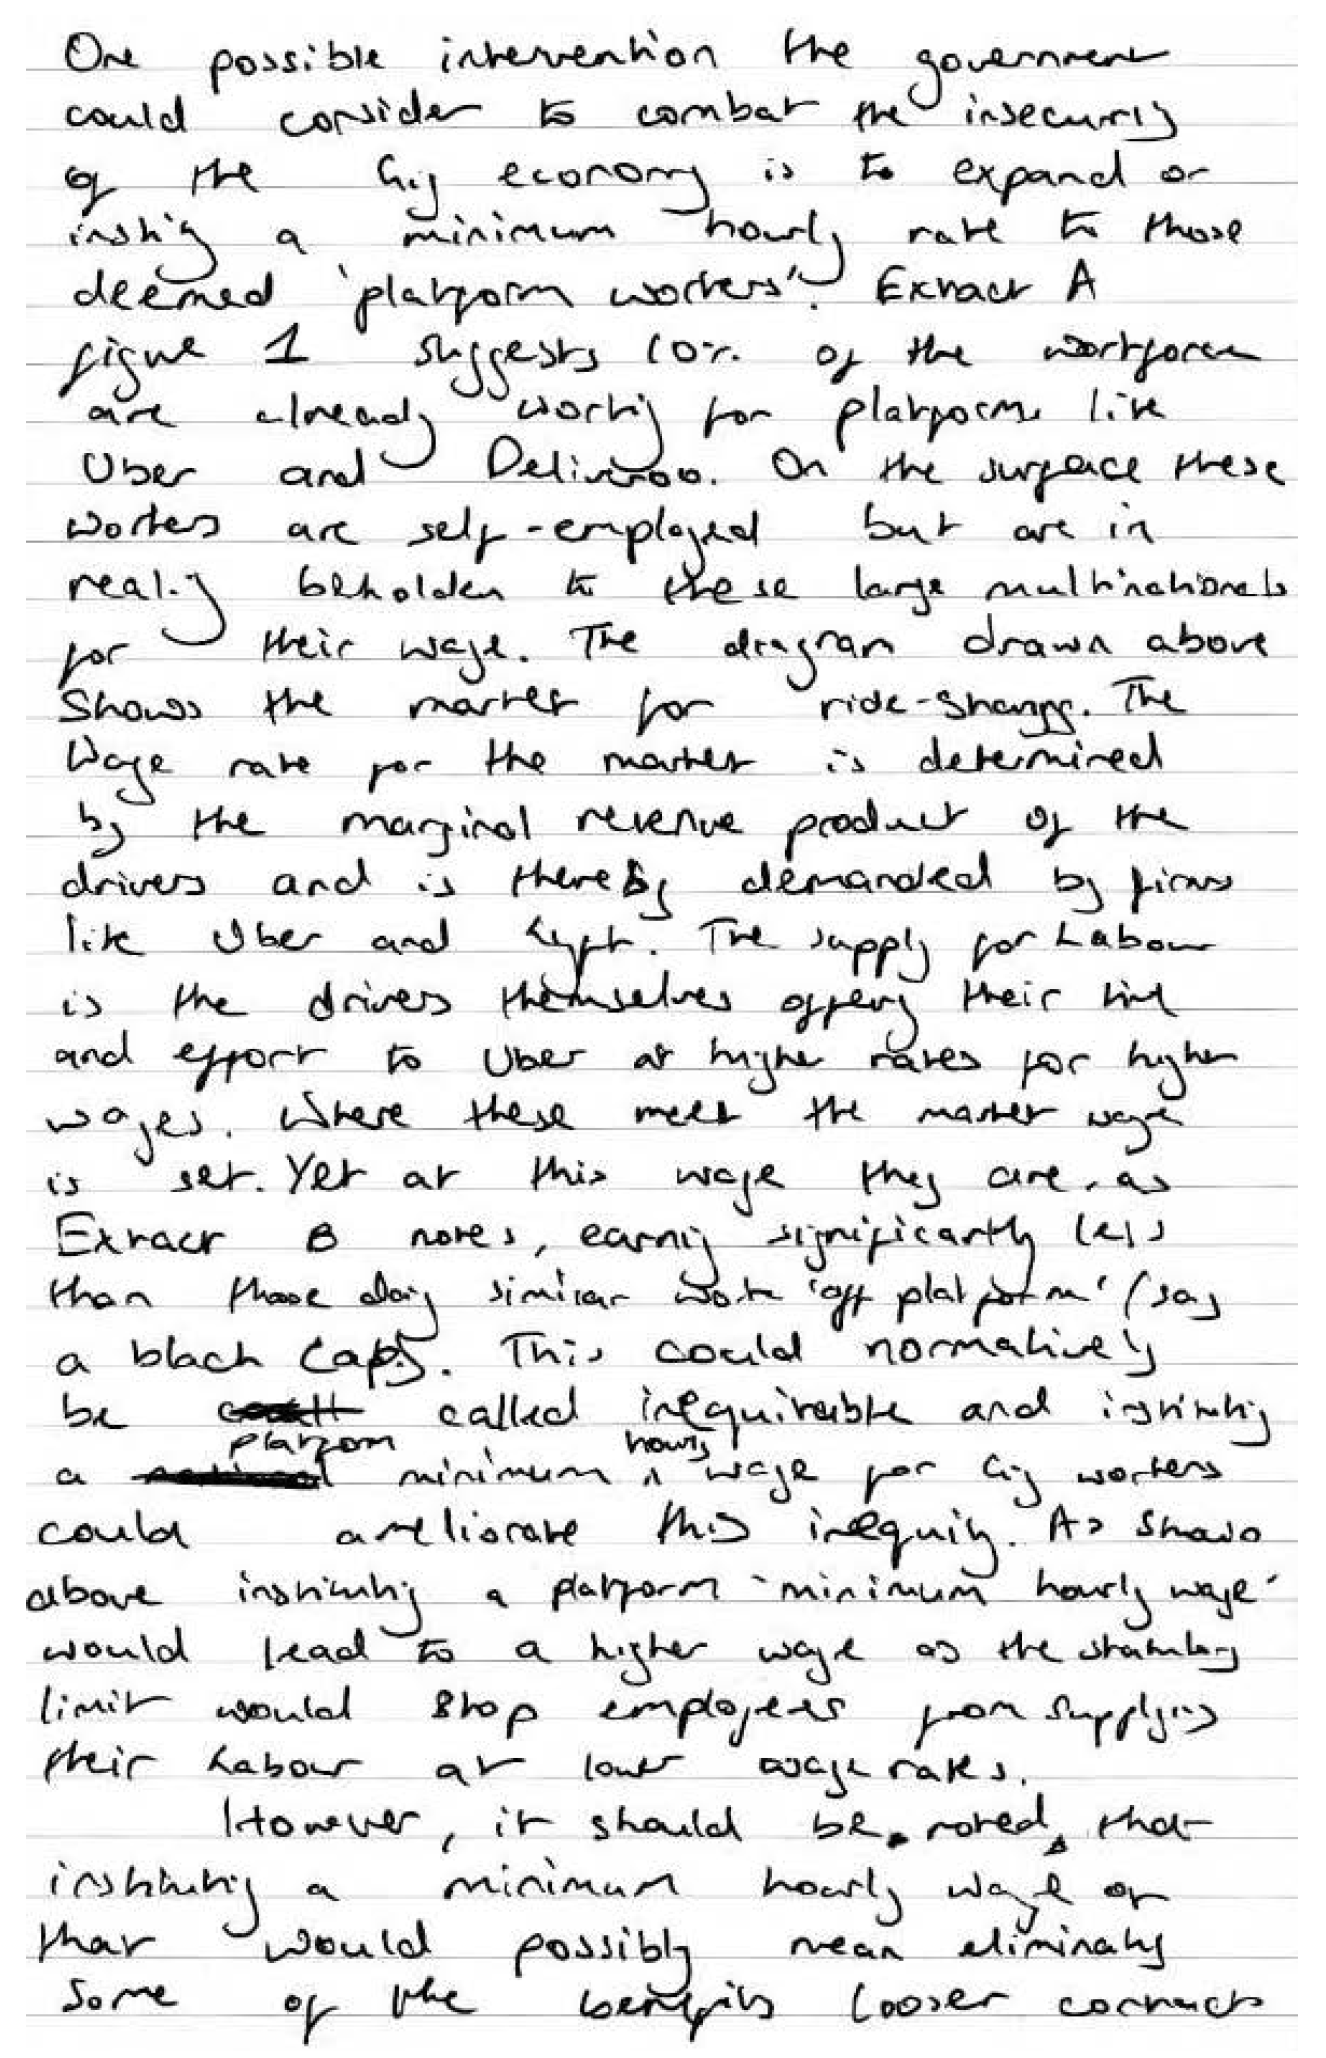 One possible intervention the government
could consider to combat the insecurity
of the Gig economy is to expand or
a minimum hourly rate to those
deemed 'platform workers'. Extract A
figure 1 suggests 10% of the workforce
are already working for platforms like
Uber and Deliveroo. On the surface these
workers are self-employed but are in
reality beholden to these large multinationals
for their wage. The diagram drawn above
Shows the market for ride-sharing. The
Wage rate for the market is determined
by the marginal revenue product of the
drivers and is thereby demanded by firms
like Uber and Lyft. The supply for Labour
is the drivers themselves offering their time
and effort to Uber at higher rates for higher
wages. Where these meet the market wage
is set. Yet at this wage they are, as
Extract B notes, earning significantly less
than those doing similar work 'off platform' (say
a black . This could normatively
be called inequitable and instituting
a platform minimum hourly wage for Gig workers
could ameliorate this inequity. As shown
above instituting a platform 'minimum hourly wage'
would lead to a higher wage as the statutory
limit would stop employees from supplying
their Labour at lower wage rates.
However, it should be noted that
instituting a minimum hourly wage or
that would possibly mean eliminating
Some of the benefits looser contracts